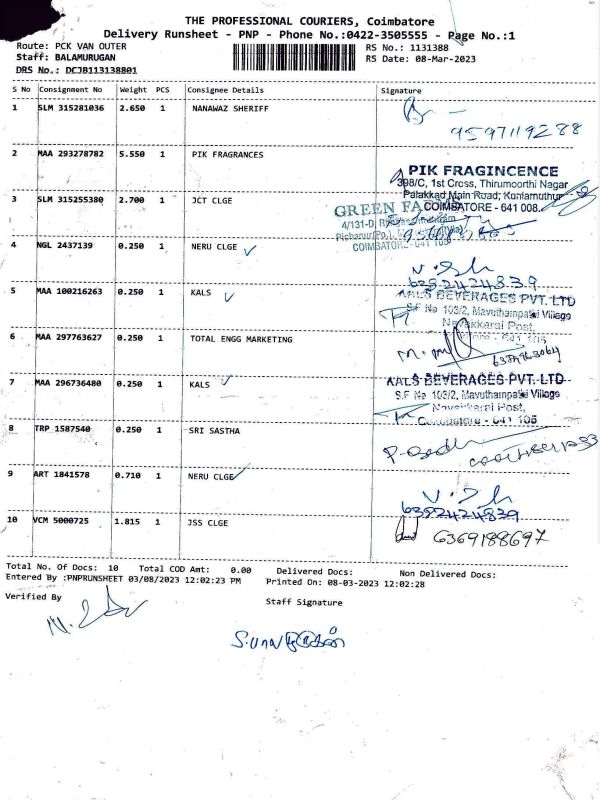 THE PROFESSIONAL COURIERS, Coimbatore
Delivery Runsheet - PNP - Phone No.:0422-3505555 - Page No.:1
Route: PCK VAN OUTER
RS No.: 1131388
Staff: BALAMURUGAN
RS Date: 08-Mar-2023
DRS No.: DCJB113138801
S No Consignment No Weight PCS Consignee Details Signature
1 SLM 315281036 2.650 1 NANAWAZ SHERIFF
9597119288
2 MAA 293278782 5.550 1 PIK FRAGRANCES
PIK FRAGINCENCE
398/C, 1st Cross, Thirumoorthi Nagar
Palakkad Main Road, Kuniamuthur
COIMBATORE - 641 008.
3 SLM 315255380 2.700 1 JCT CLGE
GREEN
4/131-D,
COIMBATORE - 641 105
4 NGL 2437139 0.250 1 NERU CLGE
6382424839
5 MAA 100216263 0.250 1 KALS
KALS BEVERAGES PVT. LTD
S.F No 103/2, Mavuthampatki Village
Navakkarai Post,
6 MAA 297763627 0.250 1 TOTAL ENGG MARKETING
7 MAA 296736480 0.250 1 KALS
KALS BEVERAGES PVT. LTD
S.F No 103/2, Mavuthampatki Village
Navakkarai Post,
Coimbatore - 641 105
8 TRP 1587540 0.250 1 SRI SASTHA
9 ART 1841578 0.710 1 NERU CLGE
6382424839
10 VCM 5000725 1.815 1 JSS CLGE
6369188697
Total No. Of Docs: 10 Total COD Amt: 0.00 Delivered Docs: Non Delivered Docs:
Entered By :PNPRUNSHEET 03/08/2023 12:02:23 PM Printed On: 08-03-2023 12:02:28
Verified By
Staff Signature